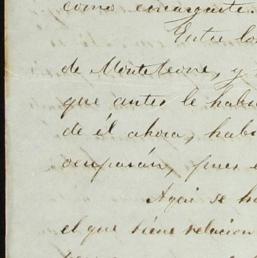 como encargaste.
Entre lo
de Monteleone, y
que antes le habi
de él ahora, habi
ocuparán, pues e
Aqui se ha
el que tiene relacion